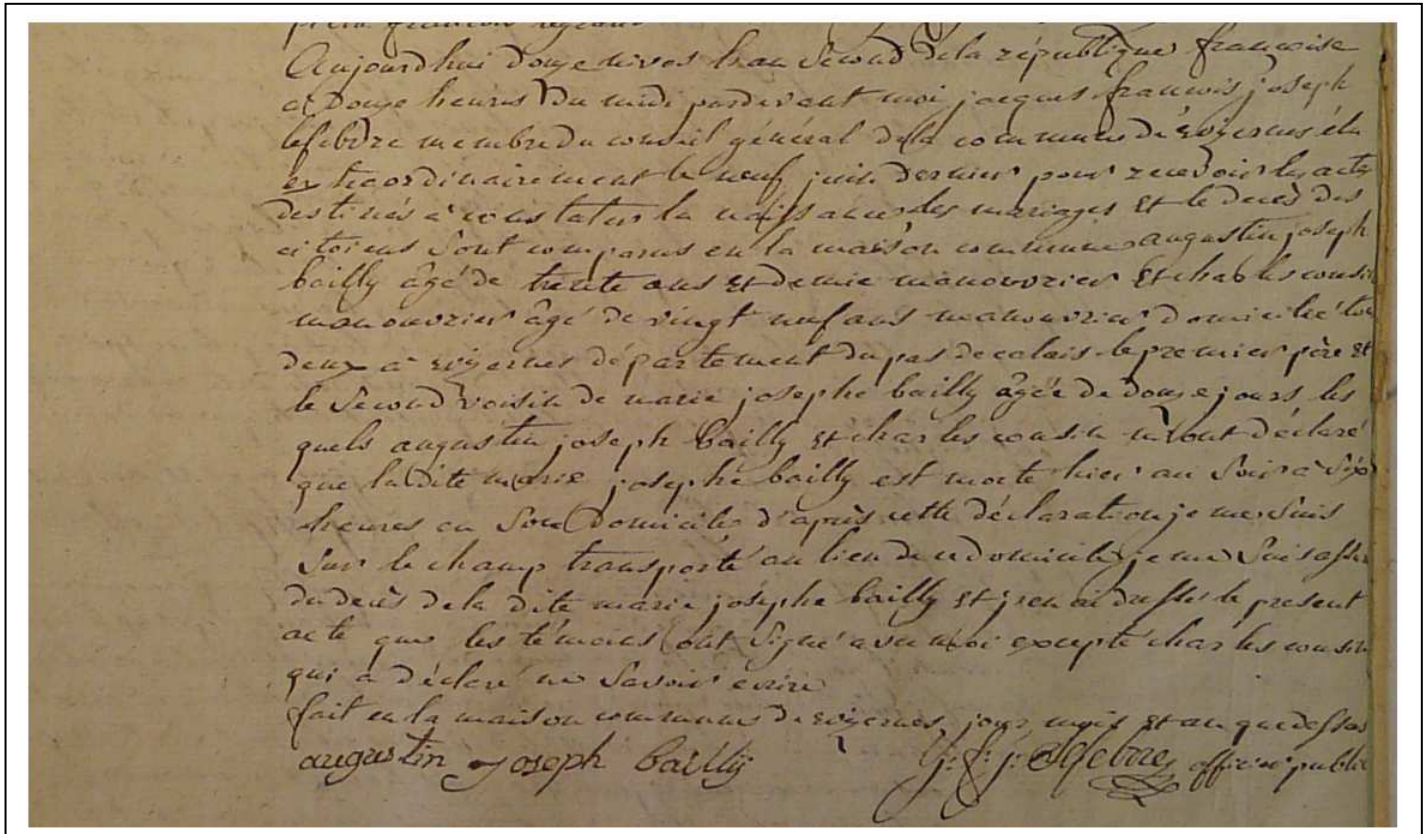 Aujourdhui douze nivos l'an second de la république francoise
a douze heures du midi pardevant moi jacques francois joseph
lefebvre membre du conseil général de la commune de wizernes élu
extraordinairement le neuf juin dernier pour recevoir les actes
destinés a constater la naissance les mariages et le decès des
citoiens sont comparus en la maison commune augustin joseph
bailly âgé de trente ans et demie manouvrier et charles cousin
manouvrier âgé de vingt neuf ans manouvrier domicilié tou
deux a wizernes département du pas de calais le premier père et
le second voisin de marie josephe bailly âgée de douze jours les
quels augustin joseph bailly et charles cousin m'ont déclaré
que la dite marie josephe bailly est morte hier au soir a six
heures en son domicile d'après cette déclaration je me suis
sur le champ transporté au lieu de ce domicile je me suis assu
du decès de la dite marie josephe bailly et j'en ai dresser le present
acte que les témoins ont signé avec moi excepté charles cousin
qui a déclaré ne savoir ecrire
fait en la maison commune de wizernes jour mois et an que dessus
augustin joseph bailly j: f: j: Lefebvre officier public